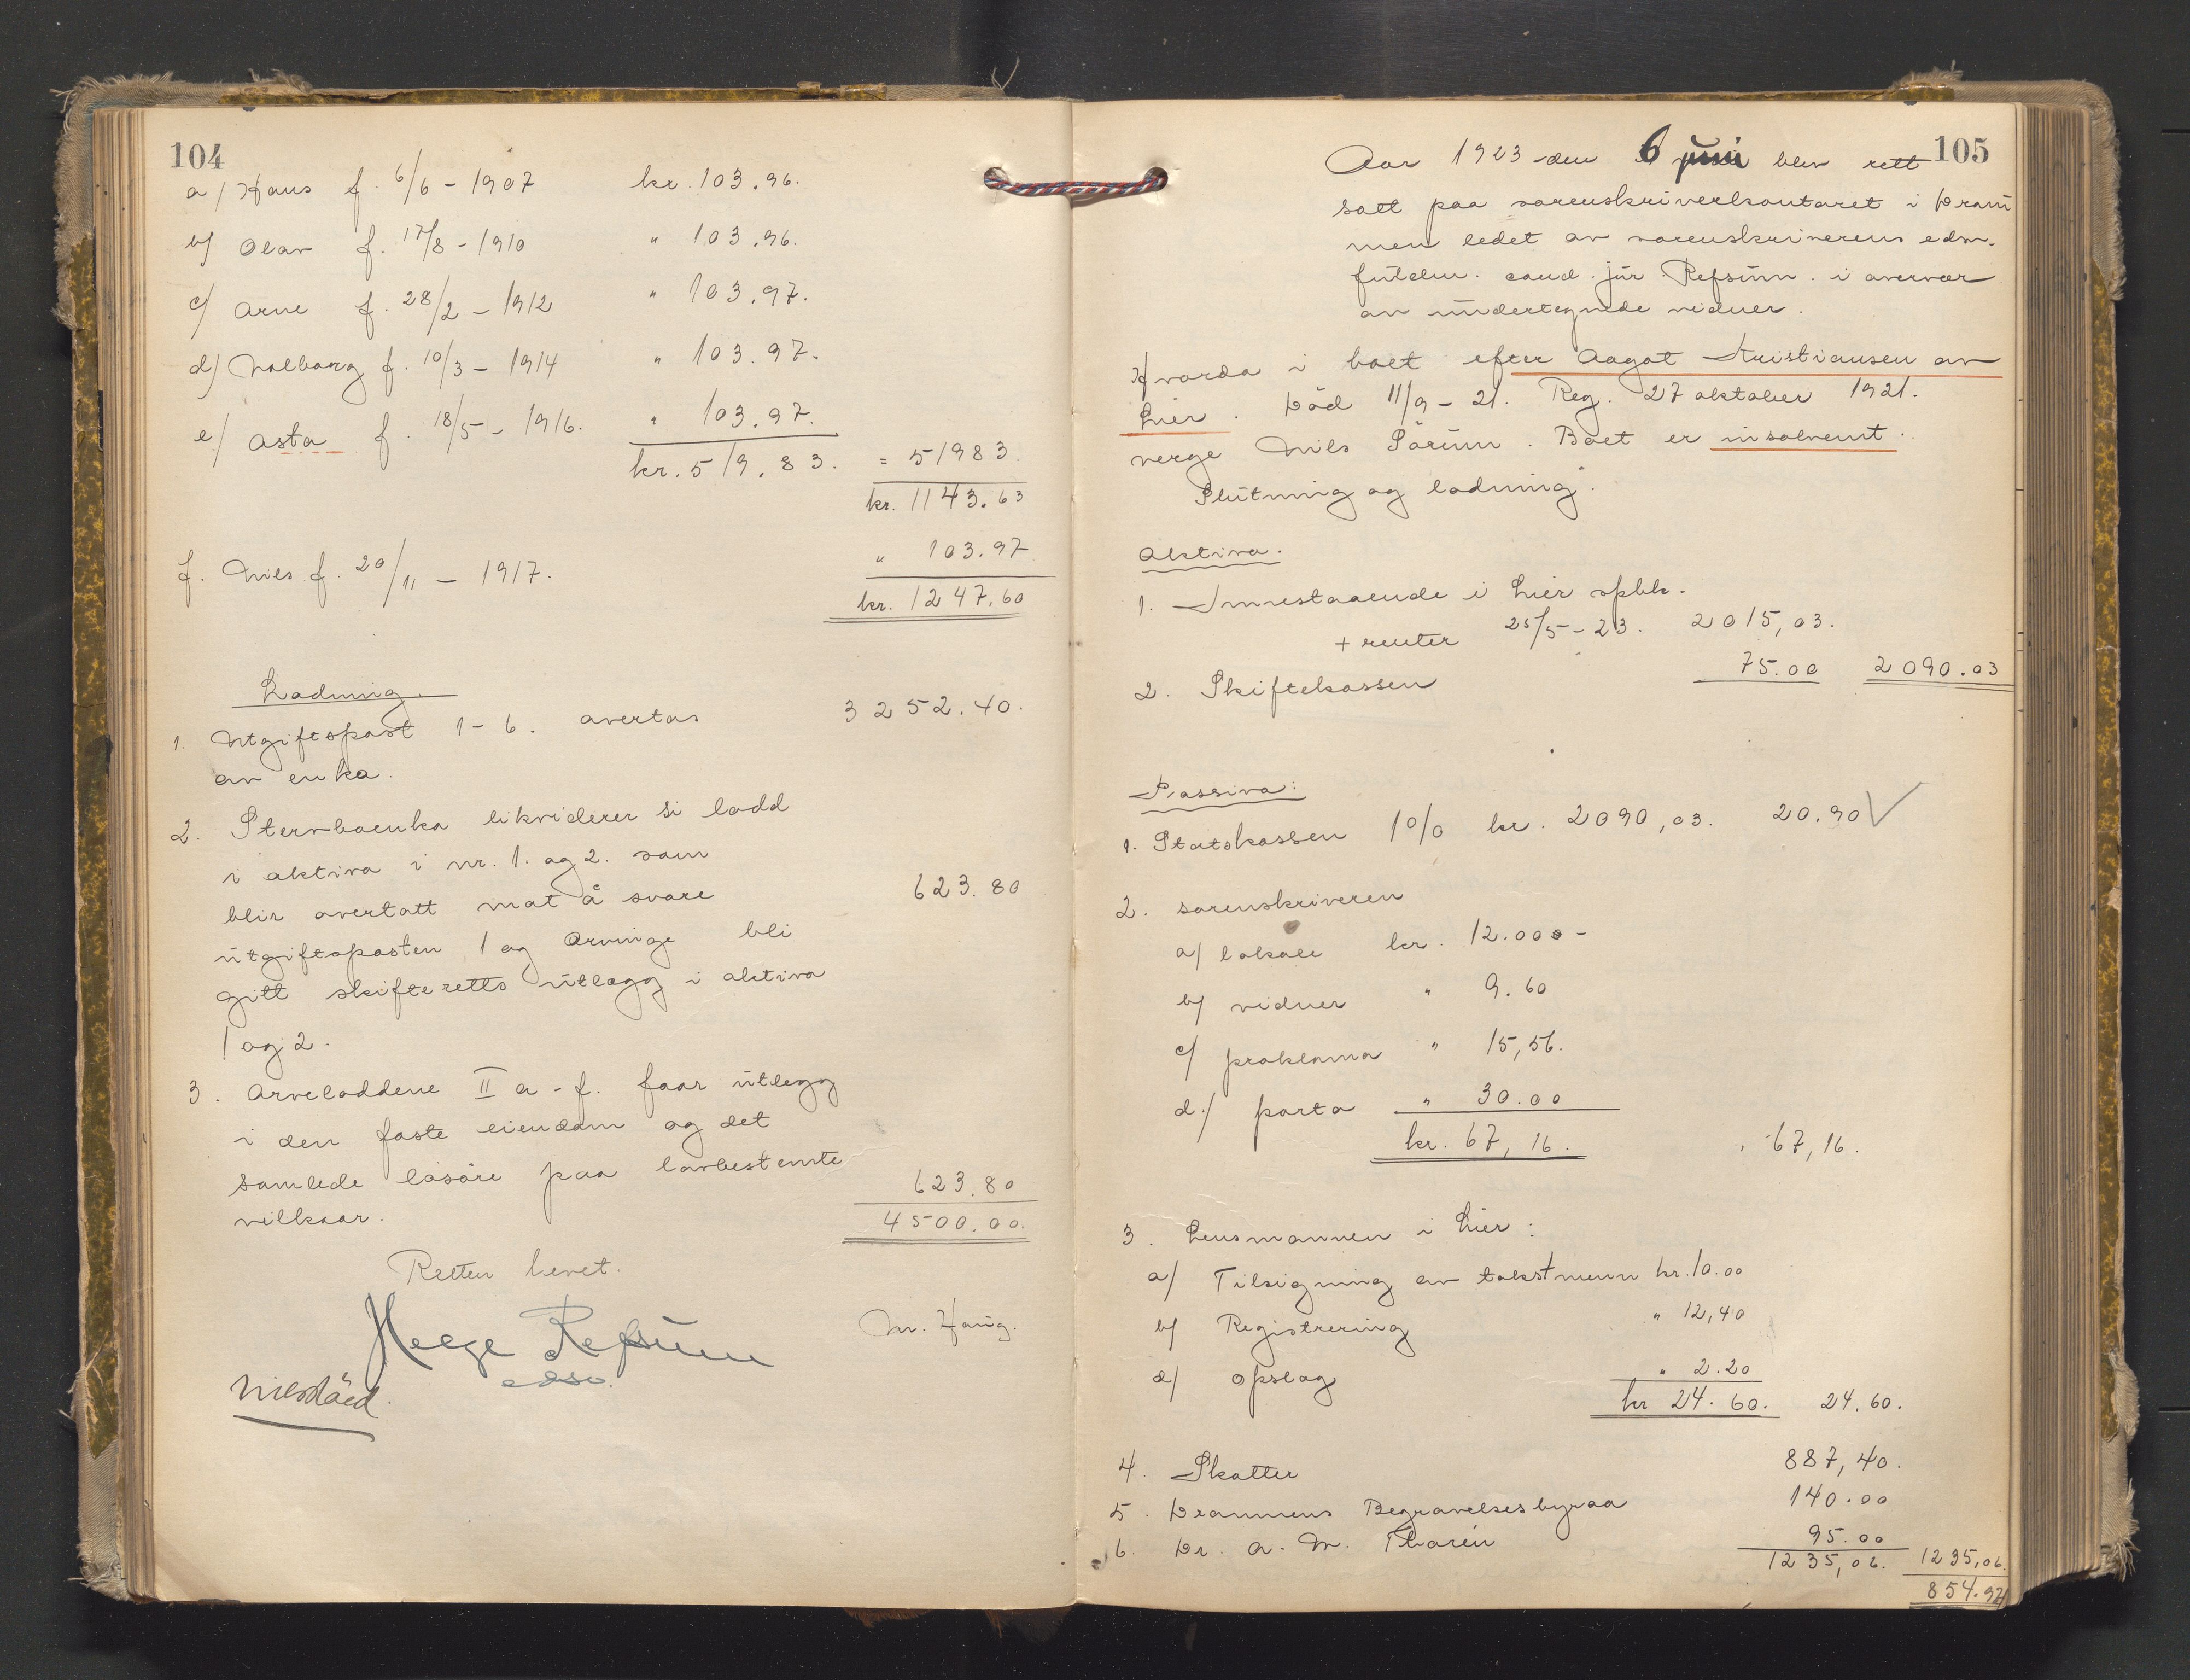 104
a/ Hans f. 6/6 - 1907 kr. 103.96.
b/ Olav f. 17/8 - 1910 " 103.96.
c/ Arne f. 28/2 - 1912 " 103.97.
d/ Valborg f. 10/3 - 1914 " 103.97.
e/ Asta f. 18/5 - 1916. " 103.97.
kr. 519.83. = 51983.
kr. 1143.63
f. Nils f. 20/11 - 1917. " 103.97
kr. 1247.60
Lodning.
1. Utgiftspost 1-6. overtas 3252.40.
av enka.
2. Stervboenka likviderer si lodd
i aktiva i nr. 1. og 2. som
blir overtatt mot å svare 623.80
utgiftsposten 1 og arvinge bli
gitt skifteretts utlegg i aktiva
1 og 2.
3. Arveloddene II a-f. faar utlegg
i den faste eiendom og det
samlede lösöre paa lovbestemte
vilkaar. 623.80
4500.00.
Retten hevet.
Helge Refsum
edsv.
M. Haug.
105
Aar 1923 den 6 juni blev rett
satt paa sorenskriverkontoret i Dram
men ledet av sorenskriverens edsv.
fuldm. cand. jur. Refsum. i overvær
av undertegnede vidner.
Hvorda i boet efter Aagot Kristiansen av
Lier. Död 11/9-21. Reg. 27 oktober 1921.
verge Nils Sörum. Boet er insolvent.
Slutning og lodning.
Aktiva.
1. Innestaaende i Lier spbk.
+ renter 25/5-23. 2015,03.
2. Skiftekassen 75.00 2090.03
Passiva:
1. Statskassen 1% kr. 2090,03. 20.90
2. sorenskriveren
a/ lokale kr. 12.00-
b/ vidner " 9.60
c/ proklama " 15,56.
d./ porto " 30.00
kr. 67,16. 67,16.
3. Lensmannen i Lier:
a/ Tilsigning av takstmenn kr. 10.00
b/ Registrering " 12,40
d/ opslag " 2.20
kr 24.60. 24.60.
4. Skatter 887,40.
5. Drammens Begravelsesbyraa 140.00
6. Dr. A. M. Thorén 95.00
1235,06. 1235,06.
854.97